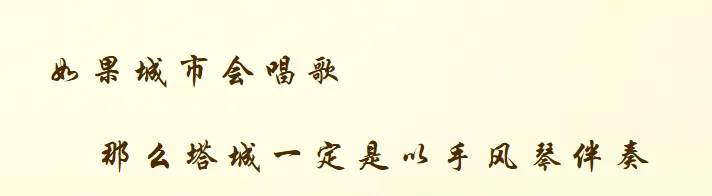 如果城市会唱歌
那么塔城一定是以手风琴伴奏